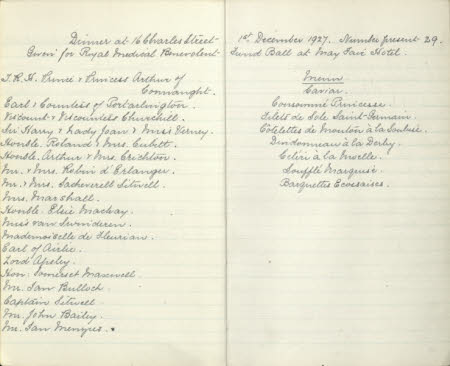 Dinner at 16 Charles Street
Given for Royal Medical Benevolent
T.R.H. Prince & Princess Arthur of
Connaught.
Earl & Countess of Portarlington.
Viscount & Viscountess Churchill.
Sir Harry & Lady Joan & Miss Verney.
Honble. Roland & Mrs. Cubitt.
Honble. Arthur & Mrs. Crichton.
Mr. & Mrs. Robin d'Erlanger.
Mr. & Mrs. Sacheverell Sitwell.
Mrs. Marshall.
Honble. Elsie Mackay.
Miss van Swinderen.
Mademoiselle de Fleuriau.
Earl of Airlie.
Lord Apsley.
Hon: Somerset Maxwell.
Mr. Ian Bulloch.
Captain Sitwell.
Mr. John Bailey.
Mr. Ian Menzies.
1st December 1927. Number present 29.
Fund Ball at May Fair Hotel.
Menu
Caviar.
Consommé Princesse.
Filets de Sole Saint-Germain.
Côtelettes de Mouton à la Soubise.
Dindonneau à la Derby.
Céleri à la Moelle.
Soufflé Marquise.
Barquettes Ecossaises.